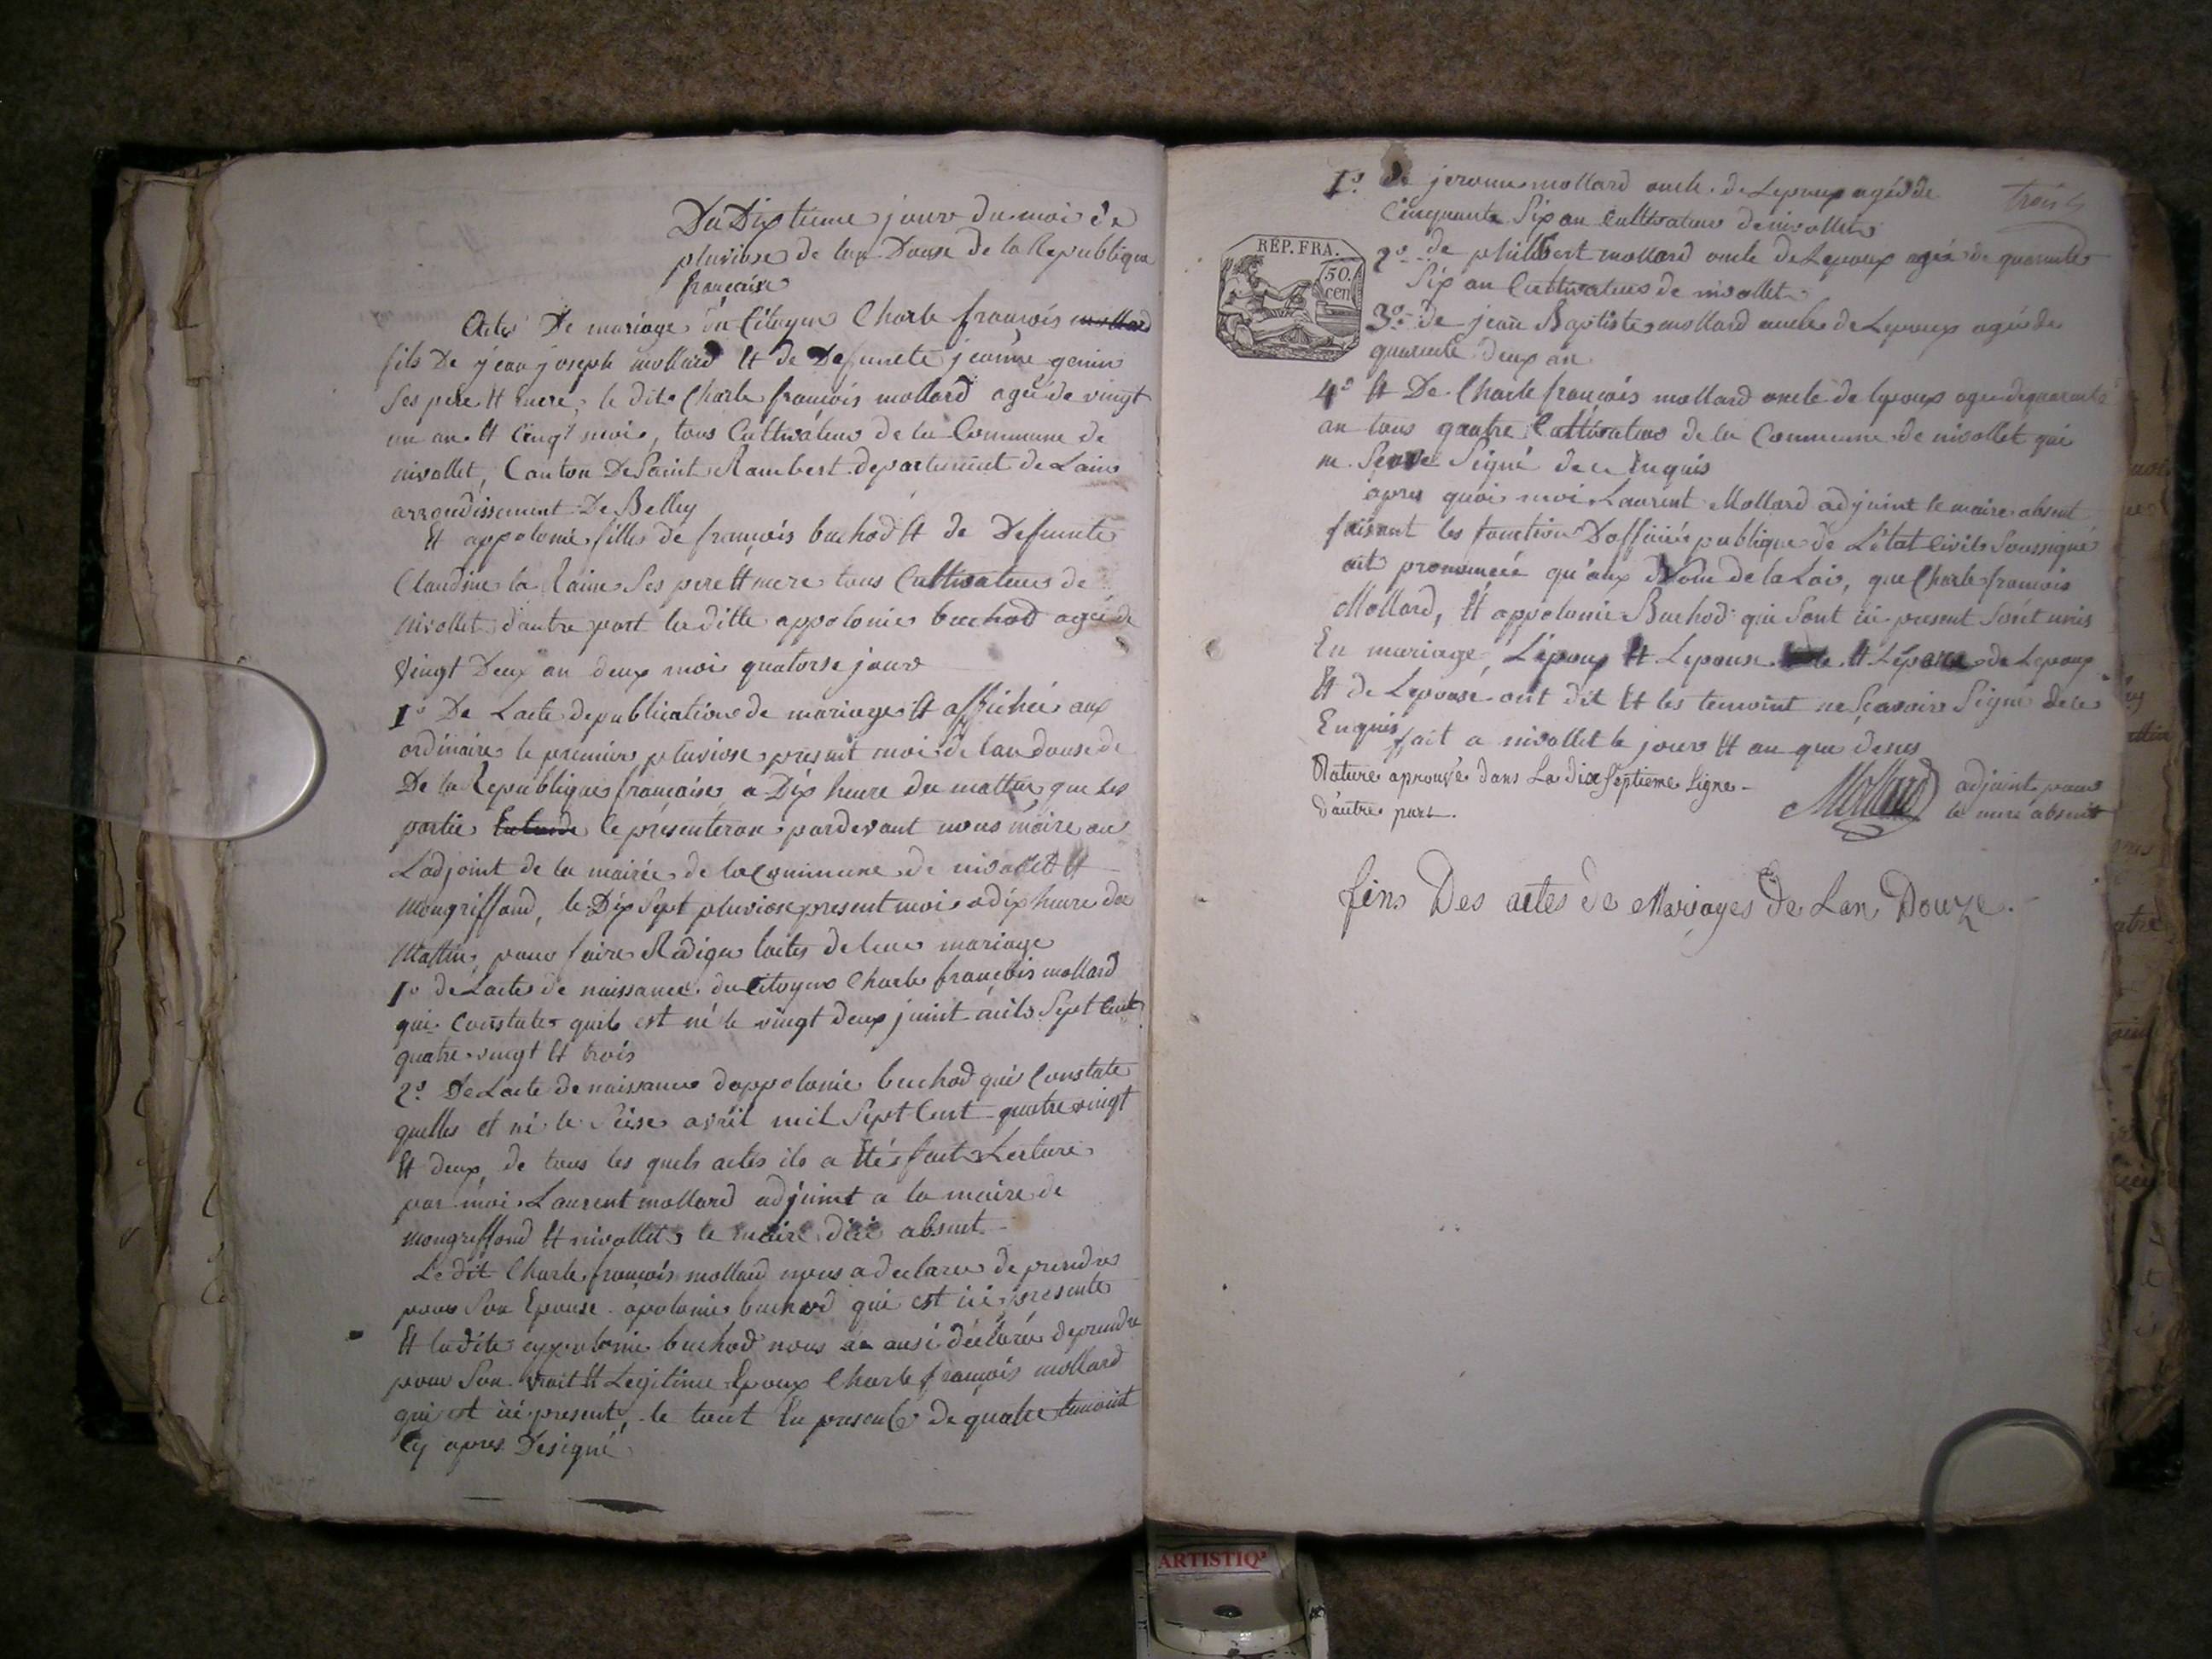 Du Dixtieme jour du moi de
pluviose de lan Douse de la Republique
francaise
Acte De mariage du Citoyen Charle francois mollard
fils De jean joseph mollard Et de Defuncte jeanne genin
Ses pere Et mere, le dit Charle francois mollard agé de vingt
un an Et Cinq moi, tous Cultivateur de la Commune de
nivollet, Canton De Saint Rambert departement de Lain
arrondissement De Belley
Et appolonie fille de françois buchod Et de Defunte
Claudine la Raine Ses pere Et mere tous Cultivateur de
nivollet d'autre part laditte appolonie buchod agée de
Vingt Deux an deux moi quatorse jour
1º De Lacte de publication de mariage Et affichée aux
ordinaire le premier pluviose present moi de lan douse de
De la Republique francaise a Dix heure du mattin que les
partie le présenteron pardevant nous maire ou
Ladjoint de la mairie de la Commune de nivollet Et
Mongriffond, le Dix Sept pluviose present moi a dix heure du
Mattin, pour faire Rediger lacte de leur mariage
1º de Lacte de naissance du Citoyen Charle françois mollard
qui Constate quil est né le vingt deux juint mil Sept Cent
quatre vingt Et trois
2º De Lacte de naissance dappolonie buchod qui Constate
quelle et né le Seise avril mil Sept Cent quatre vingt
Et deux, de tous les quels actes ils a Eté fait Lecture
par moi Laurent mollard adjoint a la maire de
Mongriffond Et nivollet, le maire absent
Le dit Charle francois mollard nous a declaree de prendre
pour Son Epouse apolonie buchod qui est ici presente
Et ladite appolonie buchod nous a ausi déclarée de prendre
pour Son Vrait Et Legitime Epoux Charle françois mollard
qui est ici present, le tout En presence de quatre temoint
Cy apres Designé
trois
1º de jerome mollard oncle de Lepoux agé de
Cinquante Six an Cultivateur de nivollet
RÉP. FRA.
50.
cen
2º de philibert mollard oncle de Lepoux agée de quarente
Six an Cultivateur de nivollet
3º de jean Baptiste mollard oncle de Lepoux agée de
quarente deux an
4º Et De Charle françois mollard oncle de lepoux agée de quarente
an tous quatre Cultivateur de la Commune de nivollet qui
n Signé de ce Enquis
apres quoi moi Laurent Mollard adjoint le maire absent
faisant les fonction D'officiée publique de L'état Civil Soussigné
ait prononcée qu'aux Nom de la Loi, que Charle francois
Mollard, Et appolonie Buchod qui Sont ici present Sont unis
En mariage, L'epoux Et Lepouse Et Lépere de Lepoux
Et de Lepouse ont dit Et les temoint ne Scavoir Signé de ce
Enquis fait a nivollet le jour Et an que desus
Rature aprouvée dans La dix Septieme Ligne
d'autre part.
Mollard adjoint pour
le mere absent
fins Des actes de Mariages de Lan Douze.
ARTISTIQ